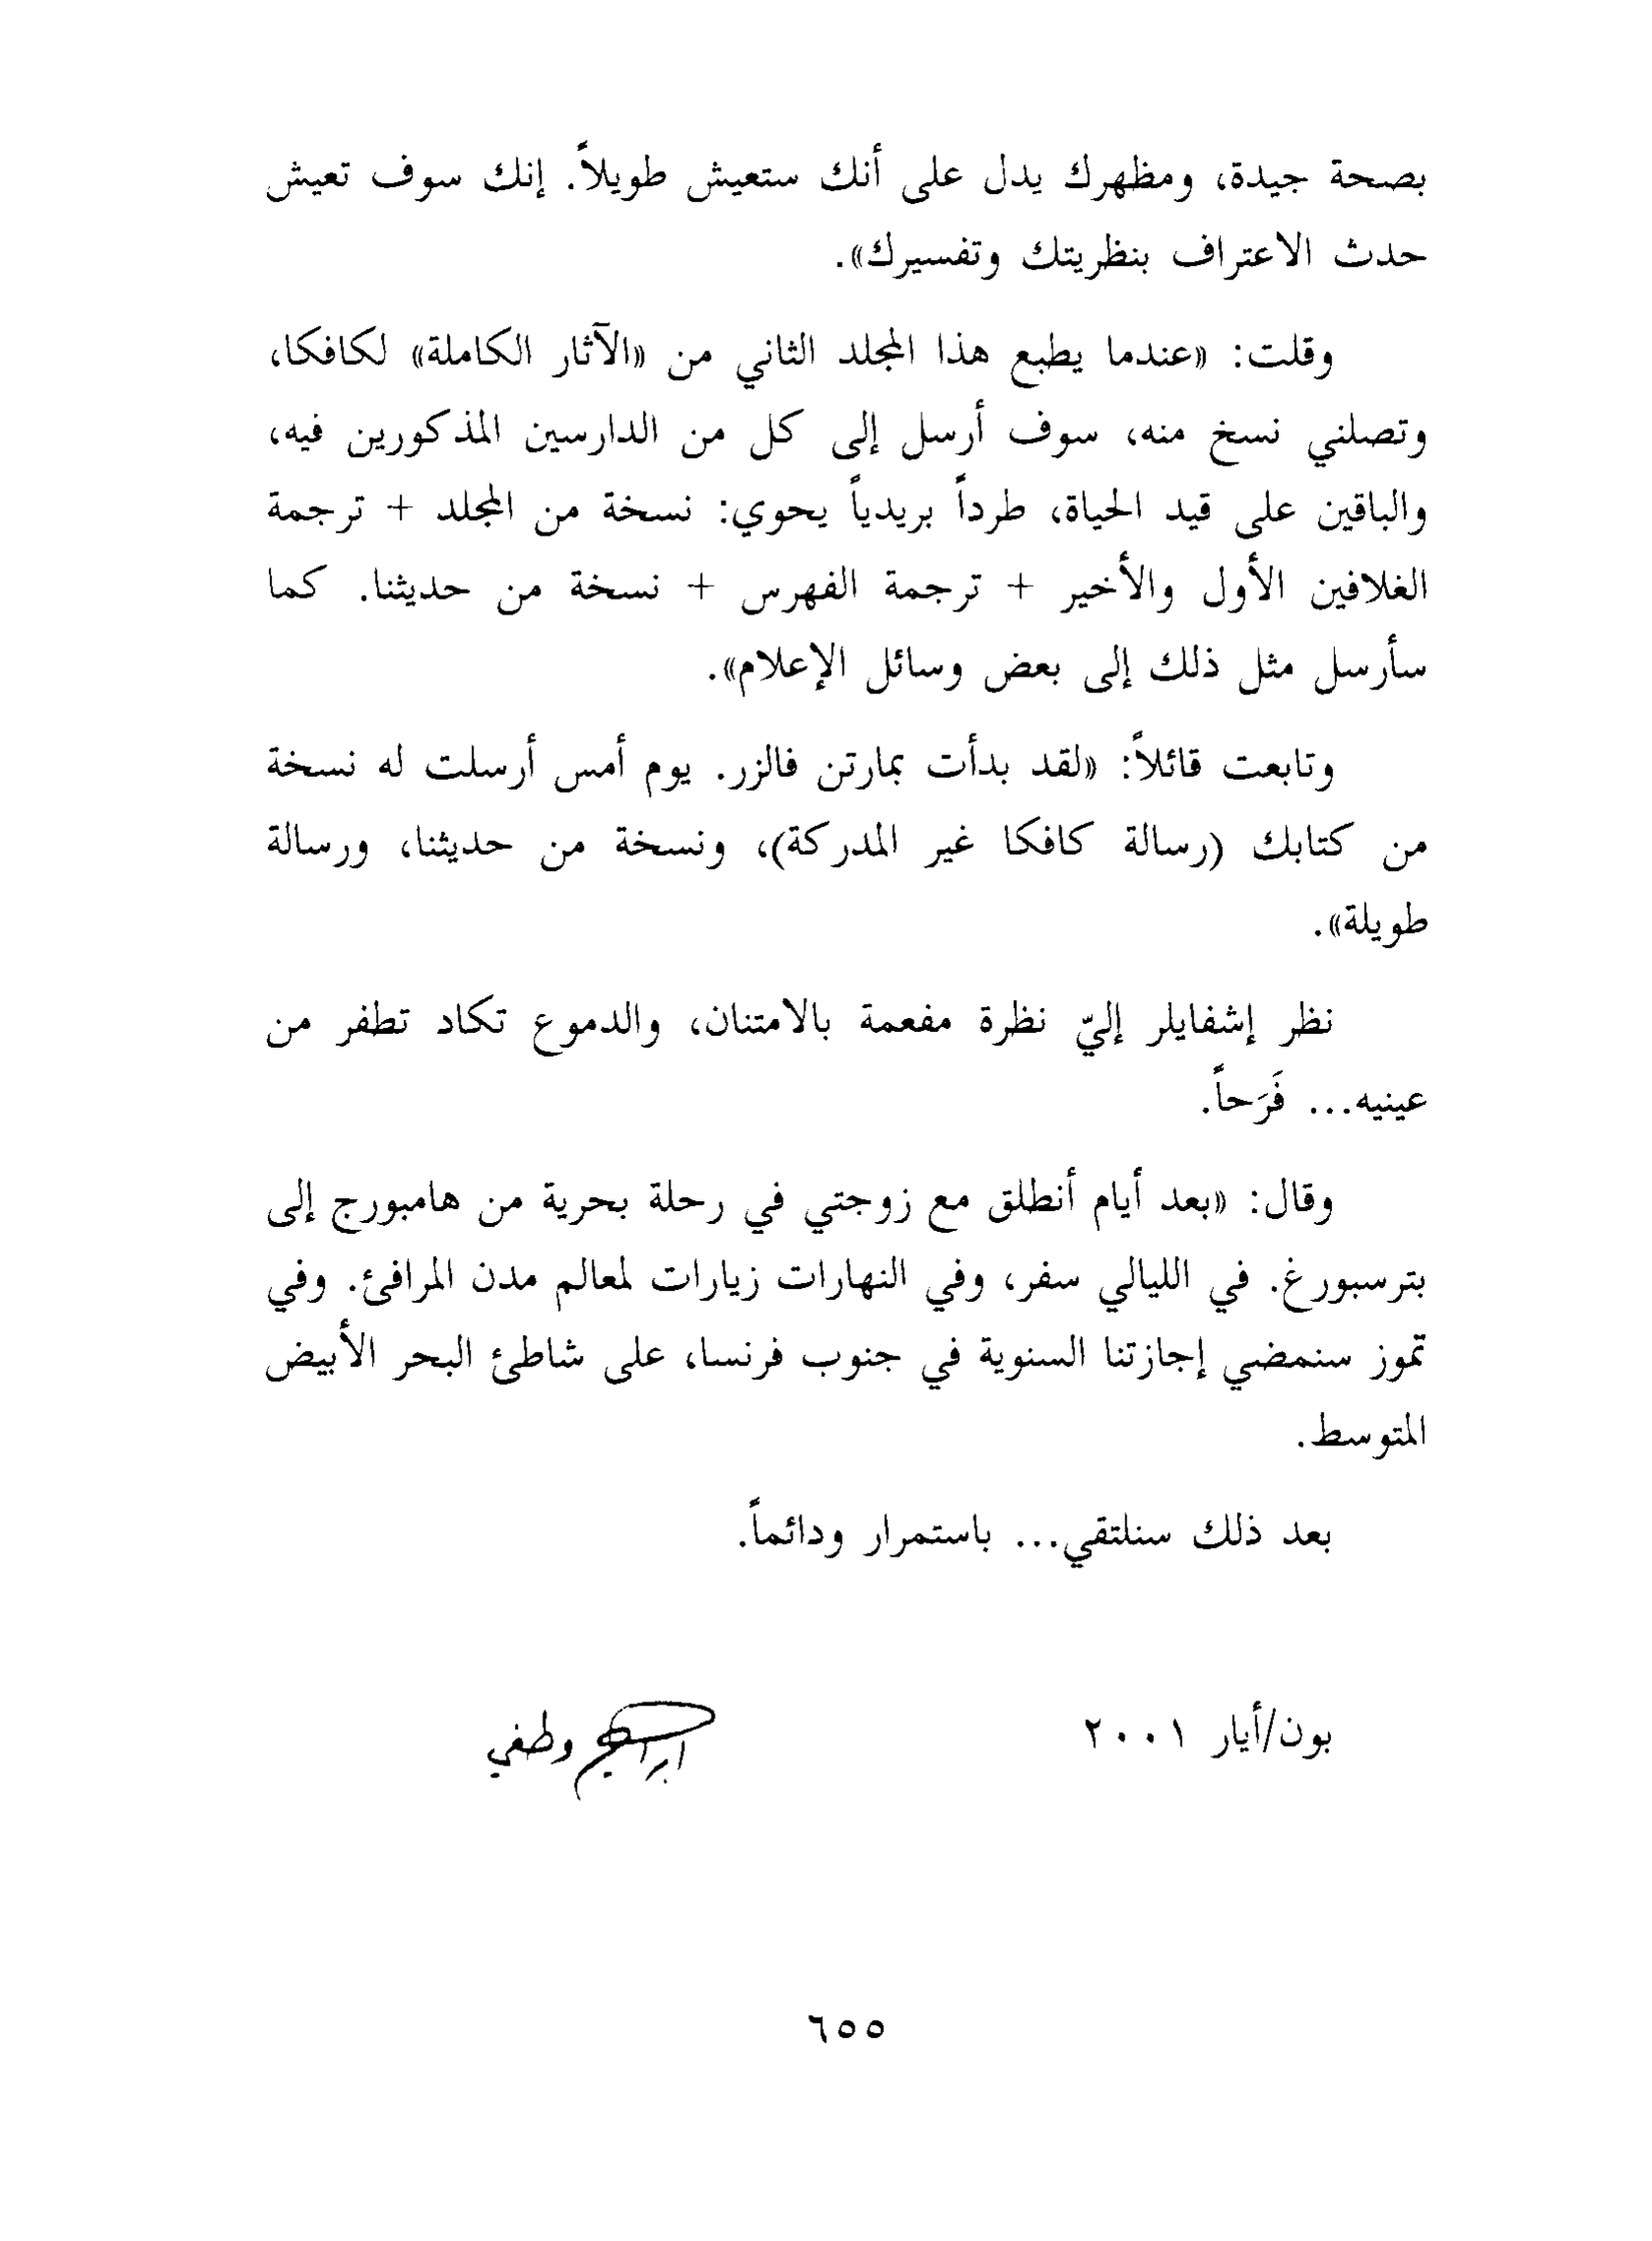 بصحة جيدة، ومظهرك يدل على أنك ستعيش طويلاً. إنك سوف تعيش
حدث الاعتراف بنظريتك وتفسيرك».
وقلت: «عندما يطبع هذا المجلد الثاني من «الآثار الكاملة» لكافكا،
وتصلني نسخ منه، سوف أرسل إلى كل من الدارسين المذكورين فيه،
والباقين على قيد الحياة، طرداً بريدياً يحوي: نسخة من المجلد + ترجمة
الغلافين الأول والأخير + ترجمة الفهرس + نسخة من حديثنا. كما
سأرسل مثل ذلك إلى بعض وسائل الإعلام».
وتابعت قائلاً: «لقد بدأت بمارتن فالزر. يوم أمس أرسلت له نسخة
من كتابك (رسالة كافكا غير المدركة)، ونسخة من حديثنا، ورسالة
طويلة».
نظر إشفايلر إليّ نظرة مفعمة بالامتنان، والدموع تكاد تطفر من
عينيه... فَرَحاً.
وقال: «بعد أيام أنطلق مع زوجتي في رحلة بحرية من هامبورج إلى
بترسبورغ. في الليالي سفر، وفي النهارات زيارات لمعالم مدن المرافئ. وفي
تموز سنمضي إجازتنا السنوية في جنوب فرنسا، على شاطئ البحر الأبيض
المتوسط.
بعد ذلك سنلتقي... باستمرار ودائماً.
بون/أيار ٢٠٠١ ابراهيم وطفي
٦٥٥